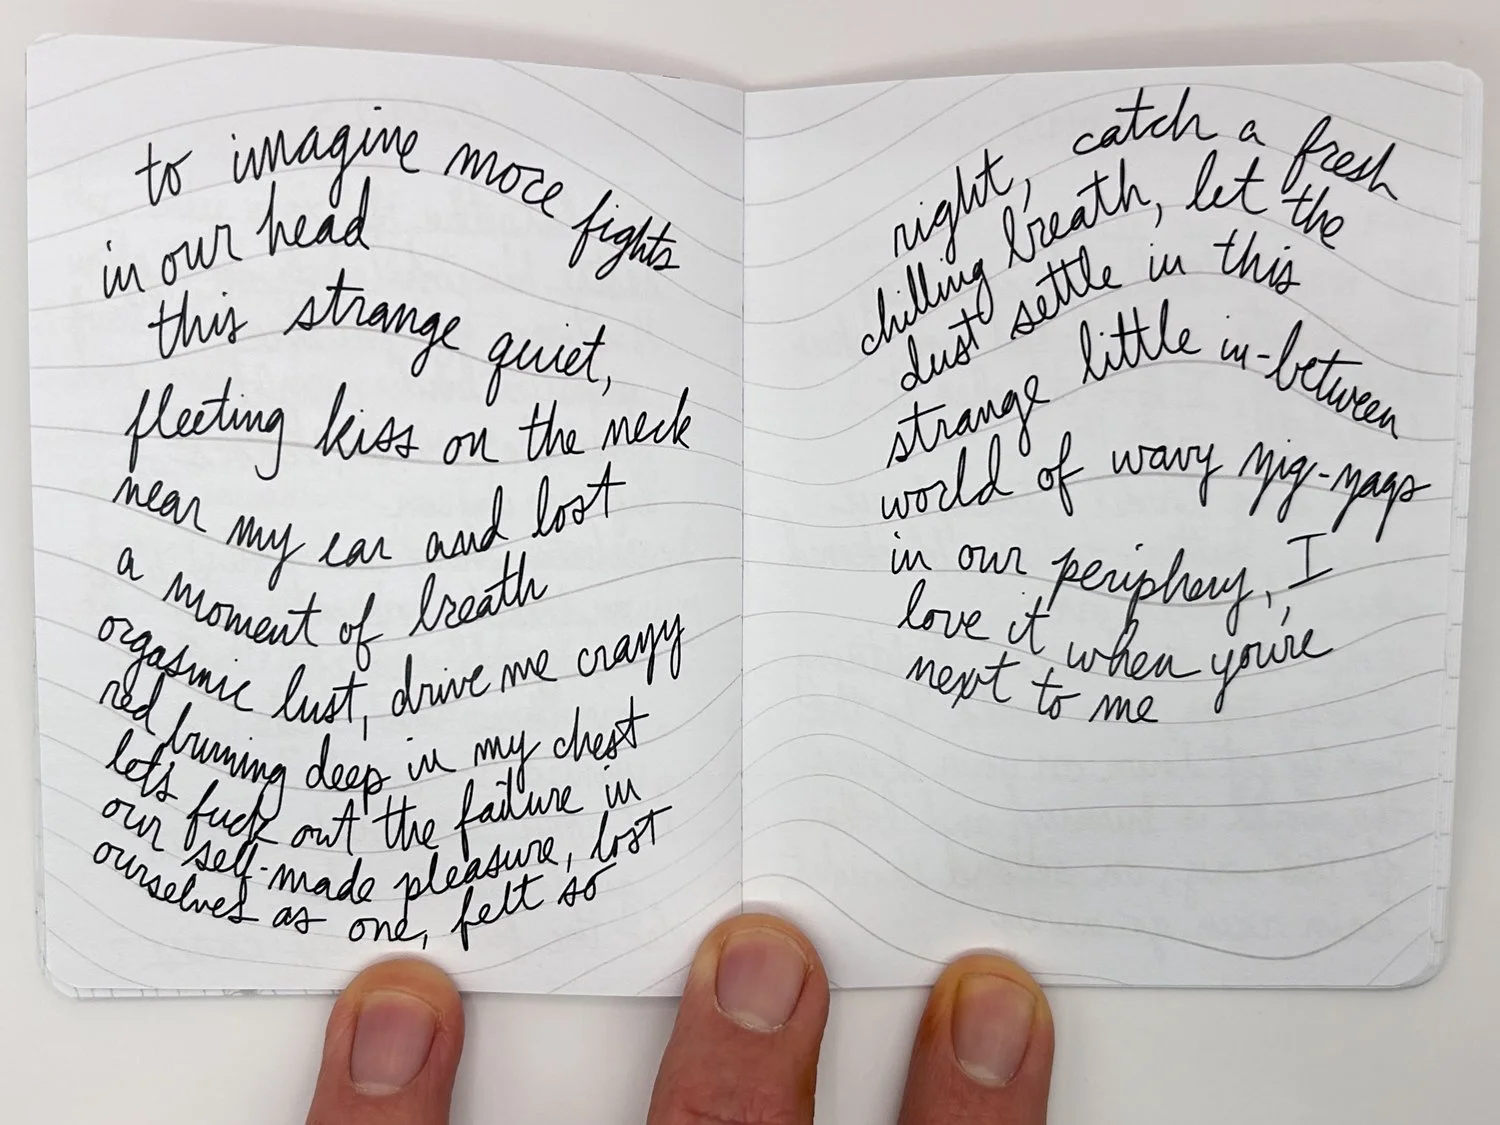 to imagine more fights
in our head
this strange quiet,
fleeting kiss on the neck
near my ear and lost
a moment of breath
orgasmic lust, drive me crazy
red burning deep in my chest
let's fuck out the failure in
our self-made pleasure, lost
ourselves as one, felt so
right, catch a fresh
chilling breath, let the
dust settle in this
strange little in-between
world of wavy zig-zags
in our periphery, I
love it when you're
next to me